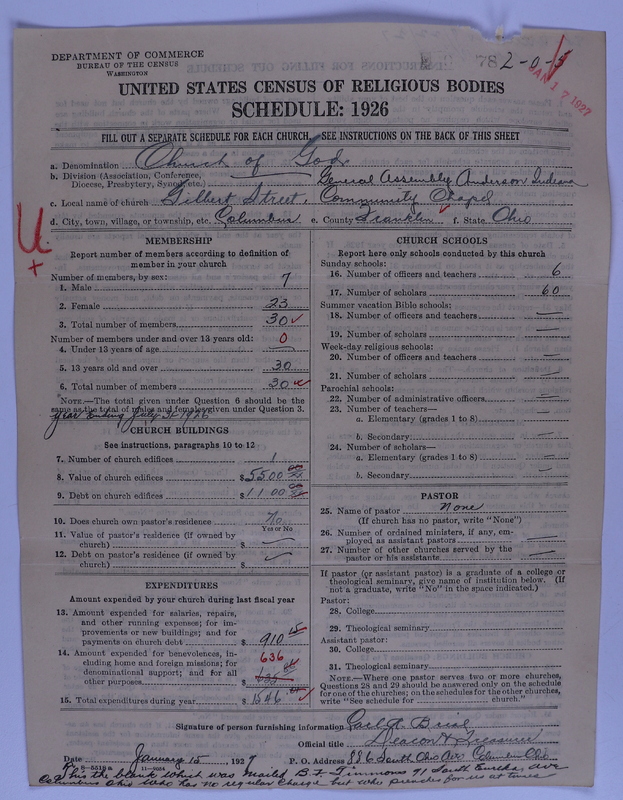 DEPARTMENT OF COMMERCE
BUREAU OF THE CENSUS
WASHINGTON
782-0-5
JAN 17 1927
UNITED STATES CENSUS OF RELIGIOUS BODIES
SCHEDULE: 1926
FILL OUT A SEPARATE SCHEDULE FOR EACH CHURCH. SEE INSTRUCTIONS ON THE BACK OF THIS SHEET
a. Denomination Church of God
b. Division (Association, Conference, Diocese, Presbytery, Synod, etc.) General Assembly Anderson Indiana
c. Local name of church Gilbert Street, Community Chapel
d. City, town, village, or township, etc. Columbus e. County Franklin f. State Ohio
U.
+
MEMBERSHIP
Report number of members according to definition of member in your church
Number of members, by sex:
1. Male 7
2. Female 23
3. Total number of members 30
Number of members under and over 13 years old: 0
4. Under 13 years of age —
5. 13 years old and over 30
6. Total number of members 30
NOTE.—The total given under Question 6 should be the same as the total of males and females given under Question 3.
Year Ending July 31-1926
CHURCH BUILDINGS
See instructions, paragraphs 10 to 12
7. Number of church edifices 1
8. Value of church edifices $5500
9. Debt on church edifices $1100
10. Does church own pastor's residence No
Yes or No
11. Value of pastor's residence (if owned by church) $
12. Debt on pastor's residence (if owned by church) $
EXPENDITURES
Amount expended by your church during last fiscal year
13. Amount expended for salaries, repairs, and other running expenses; for improvements or new buildings; and for payments on church debt $ 910 15
14. Amount expended for benevolences, including home and foreign missions; for denominational support; and for all other purposes 636
635
15. Total expenditures during year $1546
CHURCH SCHOOLS
Report here only schools conducted by this church
Sunday schools:
16. Number of officers and teachers 6
17. Number of scholars 60
Summer vacation Bible schools:
18. Number of officers and teachers —
19. Number of scholars —
Week-day religious schools:
20. Number of officers and teachers —
21. Number of scholars —
Parochial schools:
22. Number of administrative officers —
23. Number of teachers—
a. Elementary (grades 1 to 8) —
b. Secondary —
24. Number of scholars—
a. Elementary (grades 1 to 8) —
b. Secondary —
PASTOR
25. Name of pastor None
(If church has no pastor, write "None")
26. Number of ordained ministers, if any, employed as assistant pastors —
27. Number of other churches served by the pastor or his assistants —
If pastor (or assistant pastor) is a graduate of a college or theological seminary, give name of institution below. (If not a graduate, write "No" in the space indicated.)
Pastor:
28. College
29. Theological seminary
Assistant pastor:
30. College
31. Theological seminary
NOTE.—Where one pastor serves two or more churches, Questions 28 and 29 should be answered only on the schedule for one of the churches; on the schedules for the other churches, write "See schedule for church."
Signature of person furnishing information
Official title Deacon & Treasurer
Date January 15, 1927 P. O. Address 886 South Ohio Ave
8—5518 a 11—9054
this the blank which was mailed B. F. Timmons 71 South Eureka Ave
Columbus Ohio who has no regular charge but who preaches for us at times